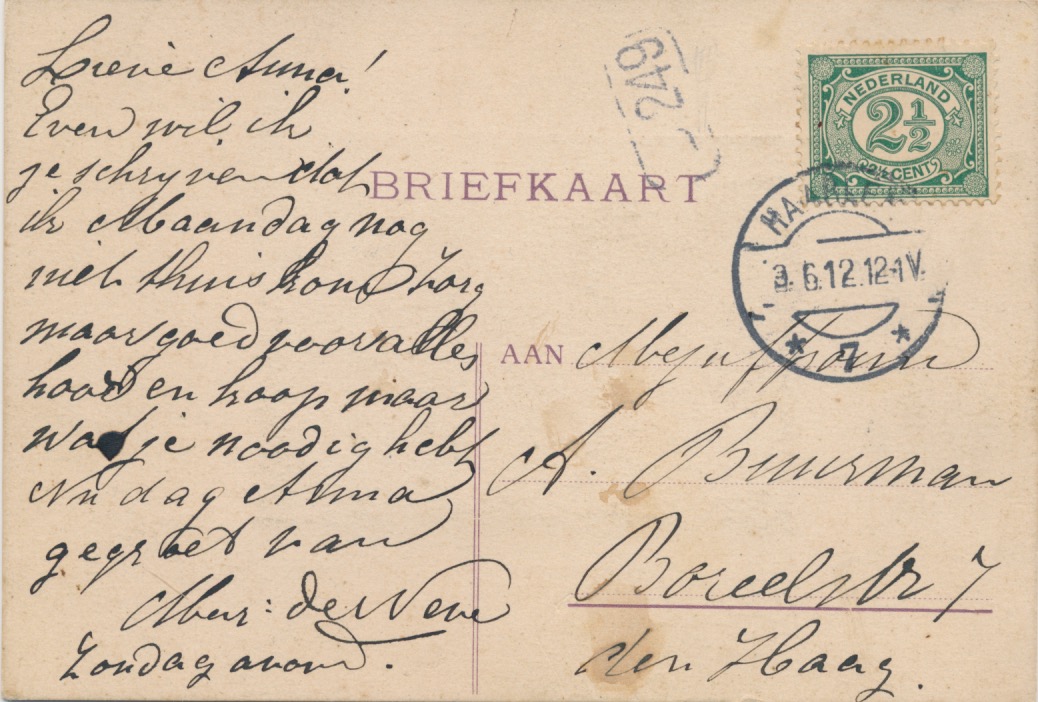 Lieve Anna!
Even wil ik
je schrijven dat
ik Maandag nog
niet thuis kom Zorg
maar goed voor alles
hoor en koop maar
wat je noodig hebt
Nu dag Anna
gegroet van
Mevr: de Neve
Zondagavond.
249
BRIEFKAART
NEDERLAND
2½
2½ CENT
3.6.12.12-1V.
7
AAN Mejuffrouw
A. Buurman
Boreelstr 7
den Haag.